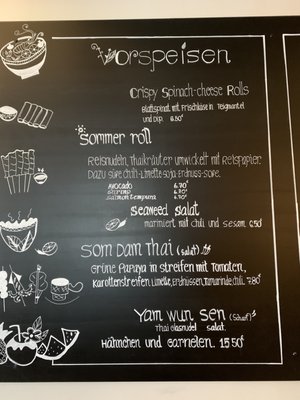 Vorspeisen
Crispy Spinach-cheese Rolls
Blattspinat mit Frischkäse in Teigmantel
und Dip. 6.50
Sommer roll
Reisnudeln, Thaikräuter umwickelt mit Reispapier.
Dazu süße chili-Limette soja-Erdnuss-Soße.
Avocado 6.70
shrimp 6.70
salmon tempura 6.70
Seaweed Salat
mariniert mit chili und sesam. 6.50
SOM DAM THAI (salat)
Grüne Papaya in streifen mit Tomaten,
Karottenstreifen Limette, Erdnüssen, Tamarinde, chili. 7.80
Yam wun sen (scharf)
Thai Glasnudel salat.
Hähnchen und Garnelen. 15.50